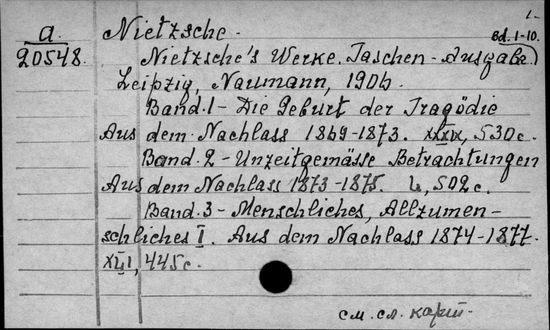 1.
a. Nietzsche.
20548. Bd. 1-10.
Nietzsche's Werke. Taschen-Ausgabe.
Leipzig, Naumann, 1906.
Band. 1 - Die Geburt der Tragödie
Aus dem Nachlass 1869-1873. XXXIX, 530 c.
Band. 2 - Unzeitgemässe Betrachtungen
Aus dem Nachlass 1873-1875. L, 502 c.
Band. 3 - Menschliches, Allzumen-
schliches I. Aus dem Nachlass 1874-1877.
XVI, 445 c.
см. сл. карт.